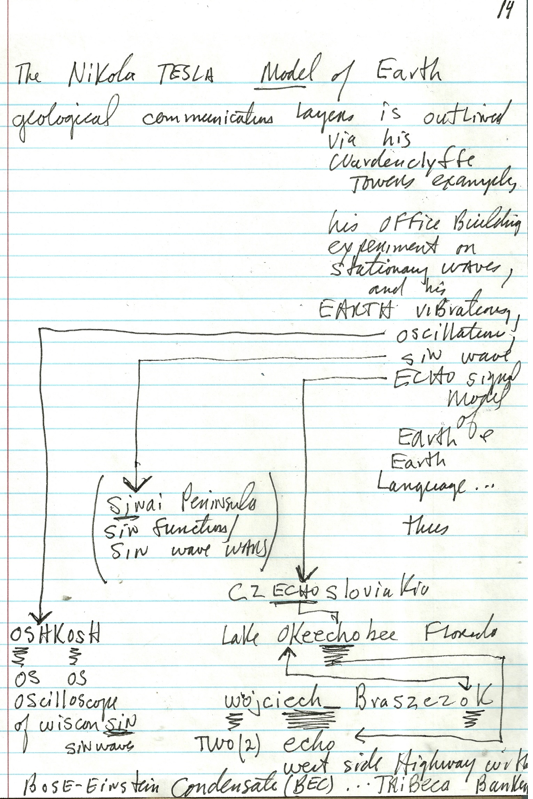 14
The Nikola TESLA Model of Earth
geological communications Layers is outlined
via his
Wardenclyffe
Towers examples,
his OFFice Building
experiment on
stationary waves,
and his
EARTH viBrations,
oscillations,
sin wave
ECHO signal
Model
of
Earth
Earth
Language...
thus
(Sinai Peninsula
sin function/
SIN wave WARS)
CZECHOsloviakia
OSHKOSH
Lake Okeechobee Florida
OS OS
OScilloscope
wojciech Braszczok
of wisconsin
sin wave
TWO(2) echo
west side Highway with
Bose-Einstein Condensate (BEC) ... TRiBeca Banker